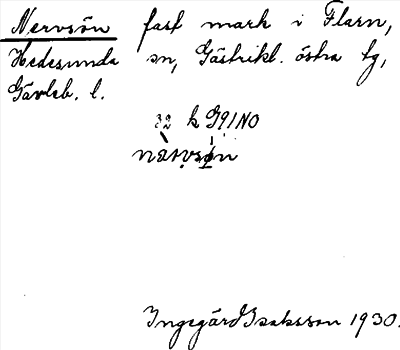 Nervsön fast mark i Flarn,
Hedesunda sn, Gästrikl. östra tg,
Gävleb. l.
32 k G91NO
närvsön
Ingegärd Isaksson 1930.